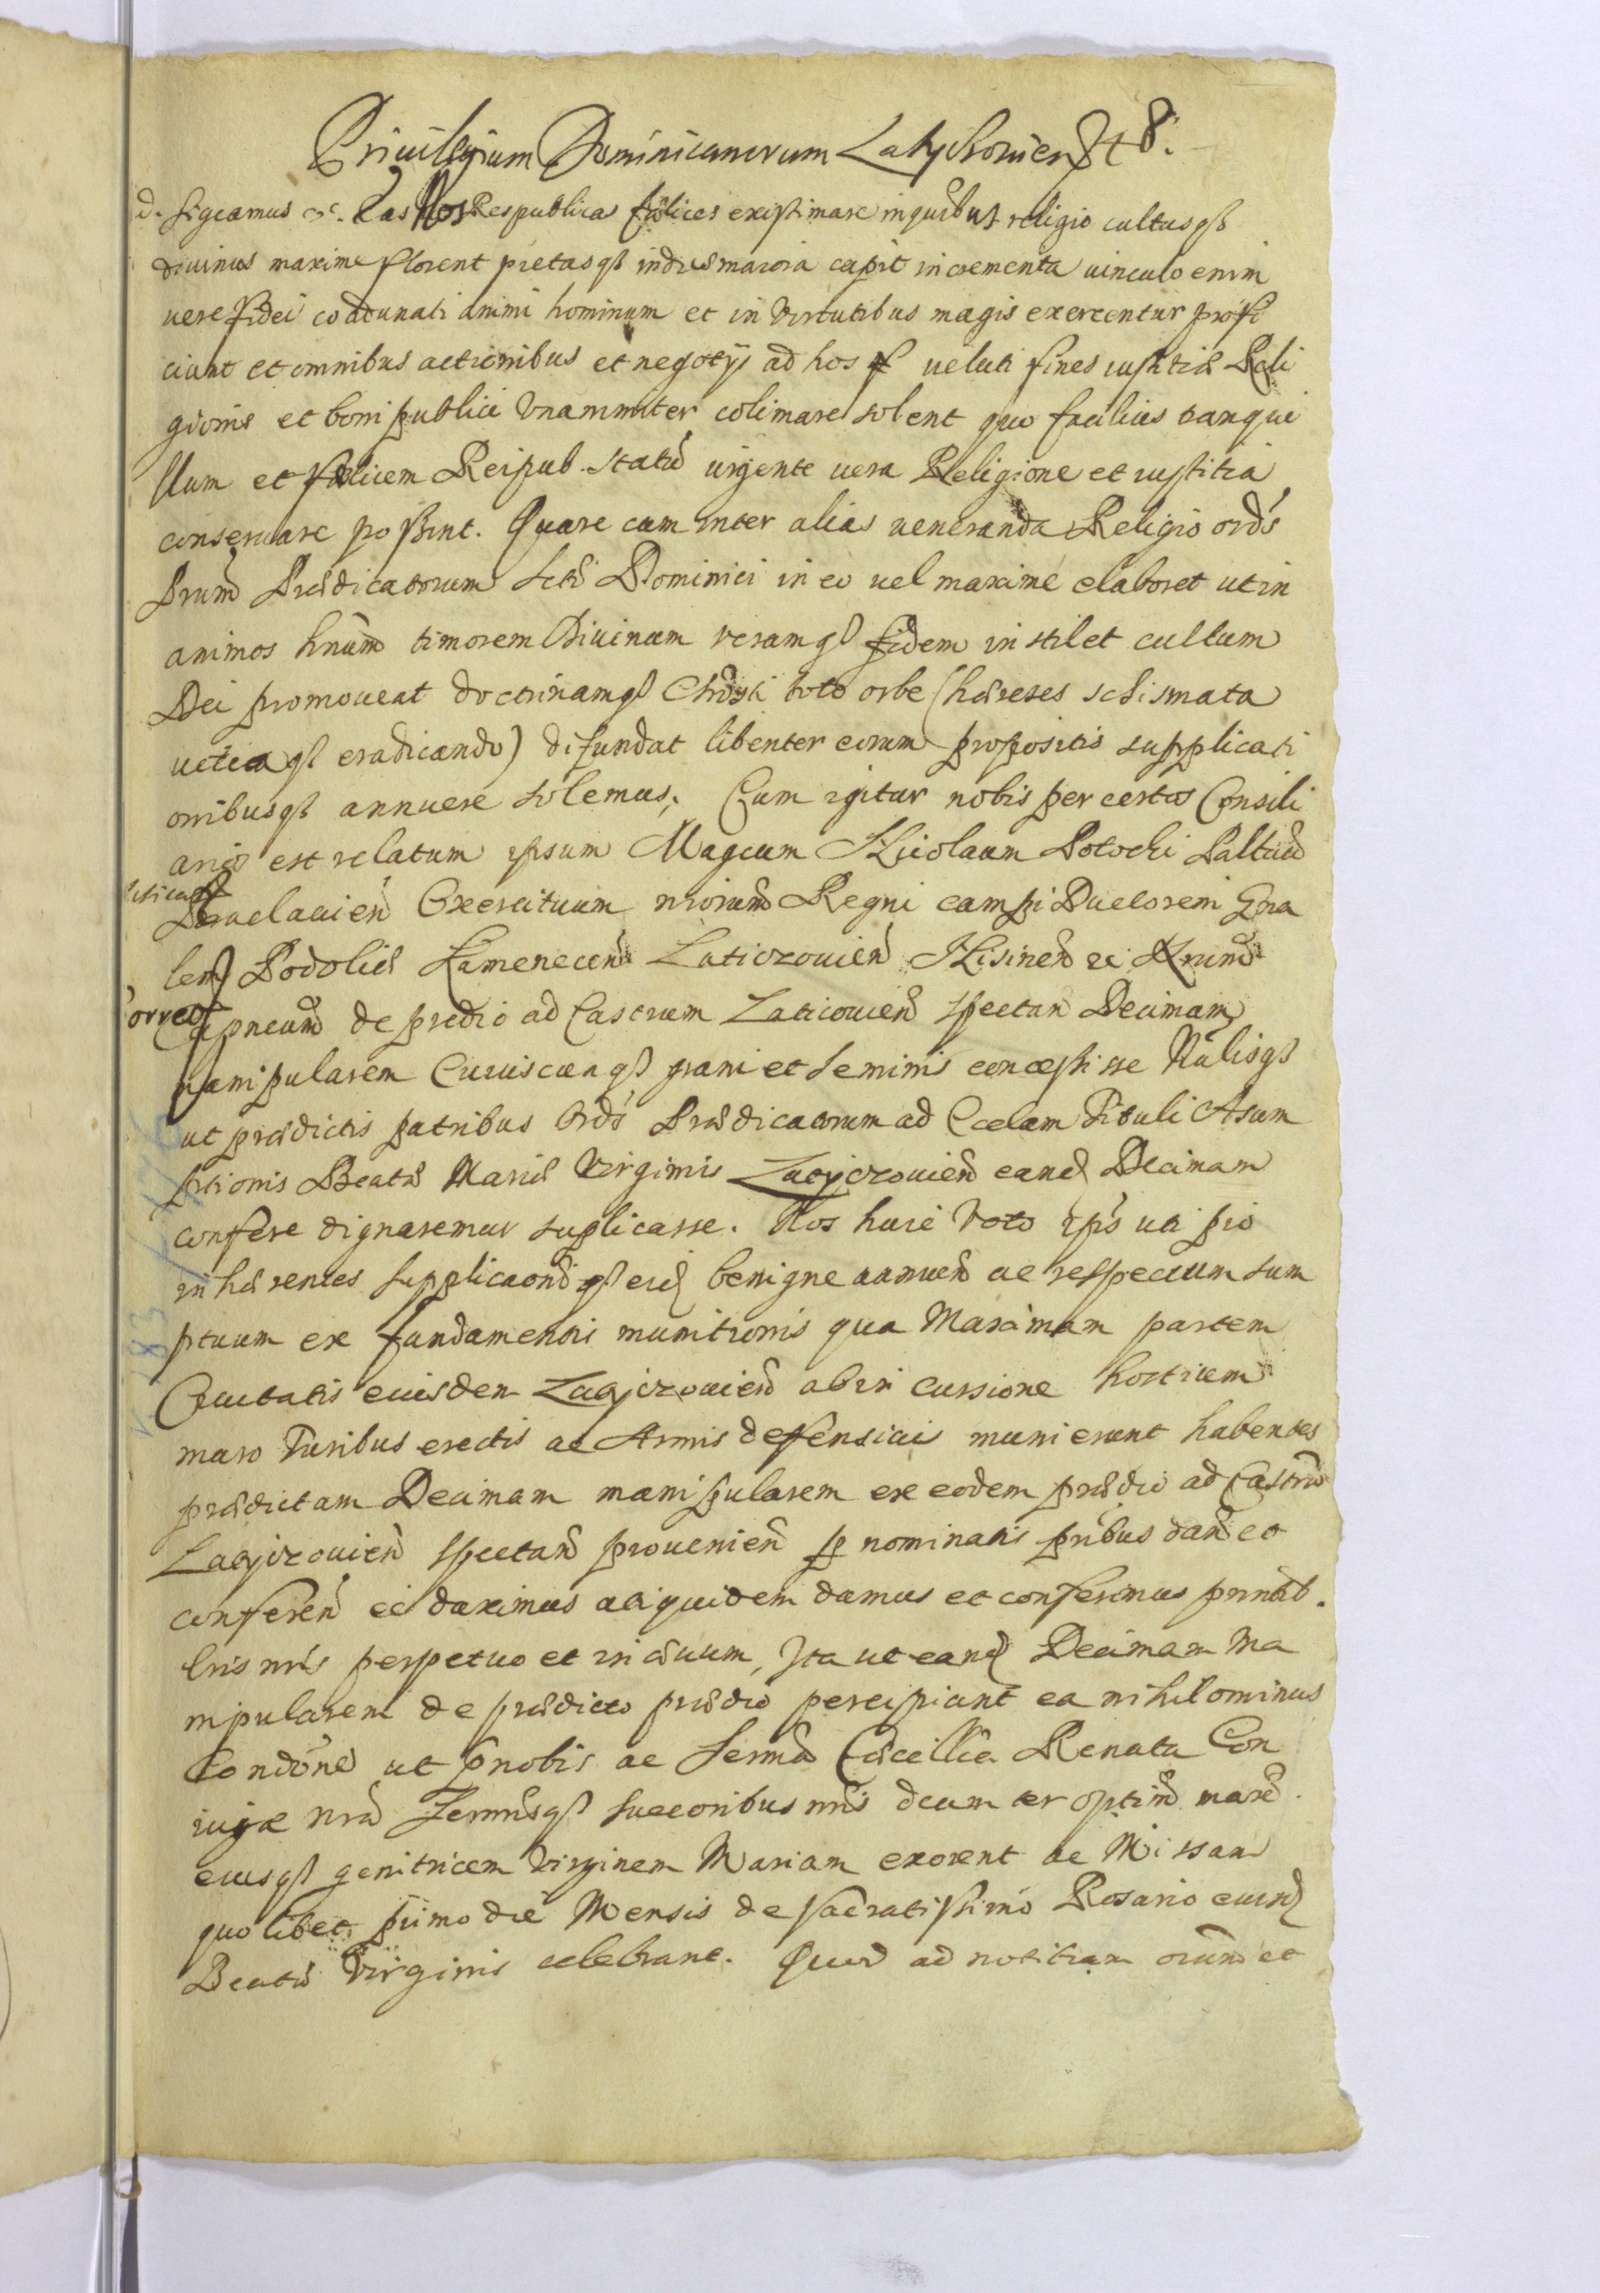 Priuilegium Dominicanorum Latyczouien 8t 8.
d. sigcamus etc. Eas Nos Respublicas fœlices existimare in quibus religio cultusq3
diuinus maxime florent pietasq3 indies maiora capit incrementa uinculo enim
uere fidei coadunati animi hominum et in virtutibus magis exercentur profi
ciunt et omnibus actionibus et negotijs ad hos ueluti fines iustitiæ Reli
gionis et boni publici Vnanimiter colimare solent quo facilius tanqui
llum et fælicem Reipub. statū urgente uera Religione et iustitia
conseruare possint. Quare cum inter alias ueneranda Religio ordīs
Prum̄ Prædicatorum Scti Dominici in eo uel maxime elaboret ut in
animos hnūm timorem Diuinum veramq3 fidem instilet cultum
Dei promoueat doctrinamq3 Chrysti toto orbe (hæreses schismata
uitiaq3 eradicando) difundat libenter eorum propositis supplicati
onibusq3 annuere solemus; Cum igitur nobis per certos Consili
arios est relatum ipsum Magcum Nicolaum Potocki Palatin̄
Braclauien̄ Exercituum nrorum̄ Regni campi Ductorem Gna
lem Podoliæ Kamenecen̄ Laticzouien̄ Nisinen̄ ec
de predio ad Castrum Laticouien̄ spectan̄ Decimam
manipularem Cuiuscunq3 grani et seminis concessisse Nūlisq3
ut prædictis patribus Ordīs Prædicatorum ad Ecclam Tituli Asum
ptionis Beatæ Mariæ Virginis Latyczouien̄ eand Decimam
confere dignaremur suplicasse. Nos huic Voto ipīs uti pio
inhærentes supplicaoniq3 eid benigne annuen̄ ac respectum sum
ptuum ex fundamentis munitionis qua Maximam partem
Ciuitatis eiusdem Latyczouien̄ ab in cursione hosticem
muro Turibus erectis ac Armis defensiuis munierunt habentes
prædictam Decimam manipularem ex eodem prædio ad Castrū
Latyczouien̄ spectan̄ prouenien̄ p nominatis pribus dan̄ et
conferen̄ ec duximus atiquidem damus et conferimus pnntib.
lris nrīs perpetuo et in æuum, Ita ut eand Decimam Ma
nipularem de prædicto prædio percipiant ea nihilominus
Condone ut p nobis ac Serma Cæcillia Renata Con
iuge nrā Sermisq3 succoribus nrīs deum ter optim̄ maxm̄.
eiusq3 genitricem Virginem Mariam exorent ac Missam
quolibet primo die Mensis de sacratissimo Rosario eiusd
Beatæ Virginis celebrant. Quod ad notitiam oium̄ et